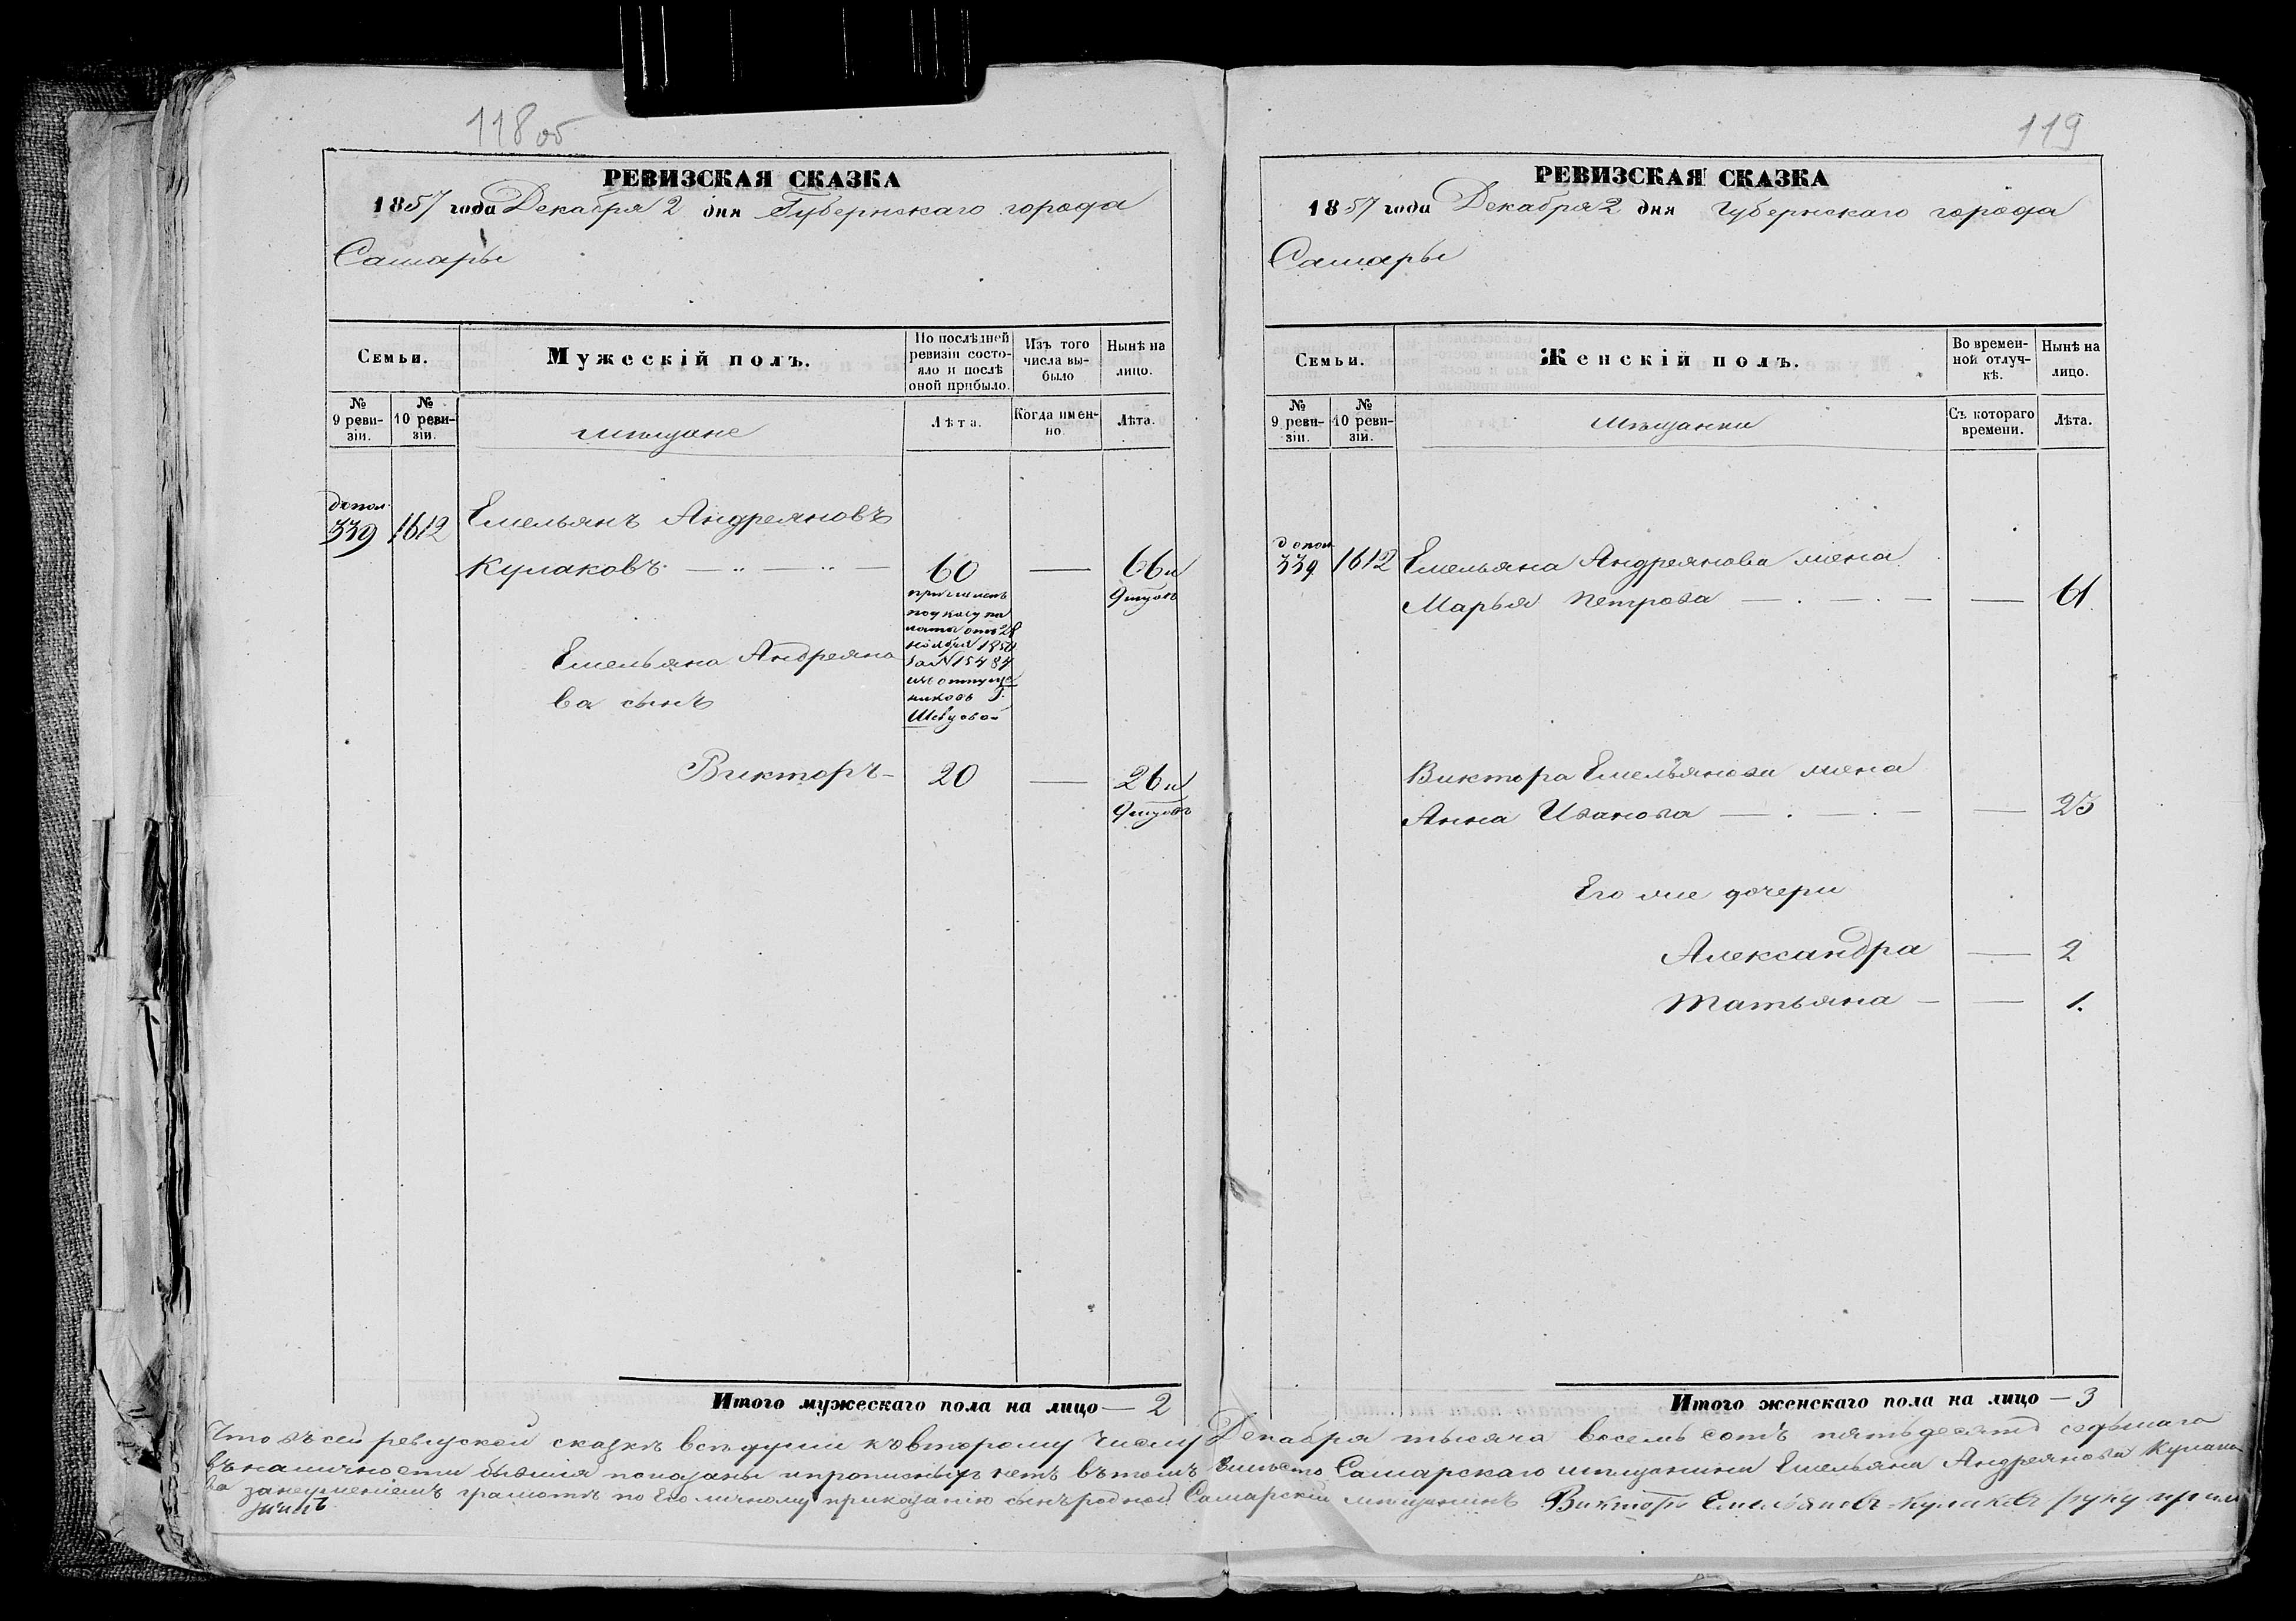 118 об
РЕВИЗСКАЯ СКАЗКА
1857 года Декабря 2 дня Губернскаго города
Самары
Семьи.
Мужескій полъ.
По послѣдней ревизіи состояло и послѣ оной прибыло.
Изъ того числа выбыло
Нынѣ на лицо.
№ 9 ревизіи.
№ 10 ревизіи.
мѣщане
Лѣта.
Когда именно.
Лѣта.
допол.
339 1612 Емельянъ Андреяновъ
Кулаковъ 60 — 66 и
9 мцовъ
причисленъ
по указу па
латы отъ 28
ноября 1850
за № 15484
изъ отпуще
никовъ Г.
Шевцовой
Емельяна Андреяно
ва сынъ
Викторъ — 20 — 26 и
9 мцовъ
Итого мужескаго пола на лицо — 2
119
РЕВИЗСКАЯ СКАЗКА
1857 года Декабря 2 дня Губернскаго города
Самары
Семьи.
Женскій полъ.
Во временной отлучкѣ.
Нынѣ на лицо.
№ 9 ревизіи.
№ 10 ревизій.
мѣщанки
Съ котораго времени.
Лѣта.
допол.
339 1612 Емельяна Андреянова жена
Марья Петрова — 61
Виктора Емельянова жена
Анна Иванова — 25
Его же дочери
Александра — 2
Татьяна — 1.
Итого женскаго пола на лицо — 3
Что въ сей ревизской сказкѣ всѣ души къ второму числу Декабря тысяча восемь сотъ пятьдесятъ седьмаго
въ наличности бывшія показаны и прописныхъ нетъ въ томъ вмѣсто Самарскаго мѣщанина Емельяна Андреянова Кулако
ва за неумениемъ грамотѣ по его личному приказанію сынъ родной Самарскій мѣщанинъ Викторъ Емельяновъ Кулаковъ руку прило
жилъ